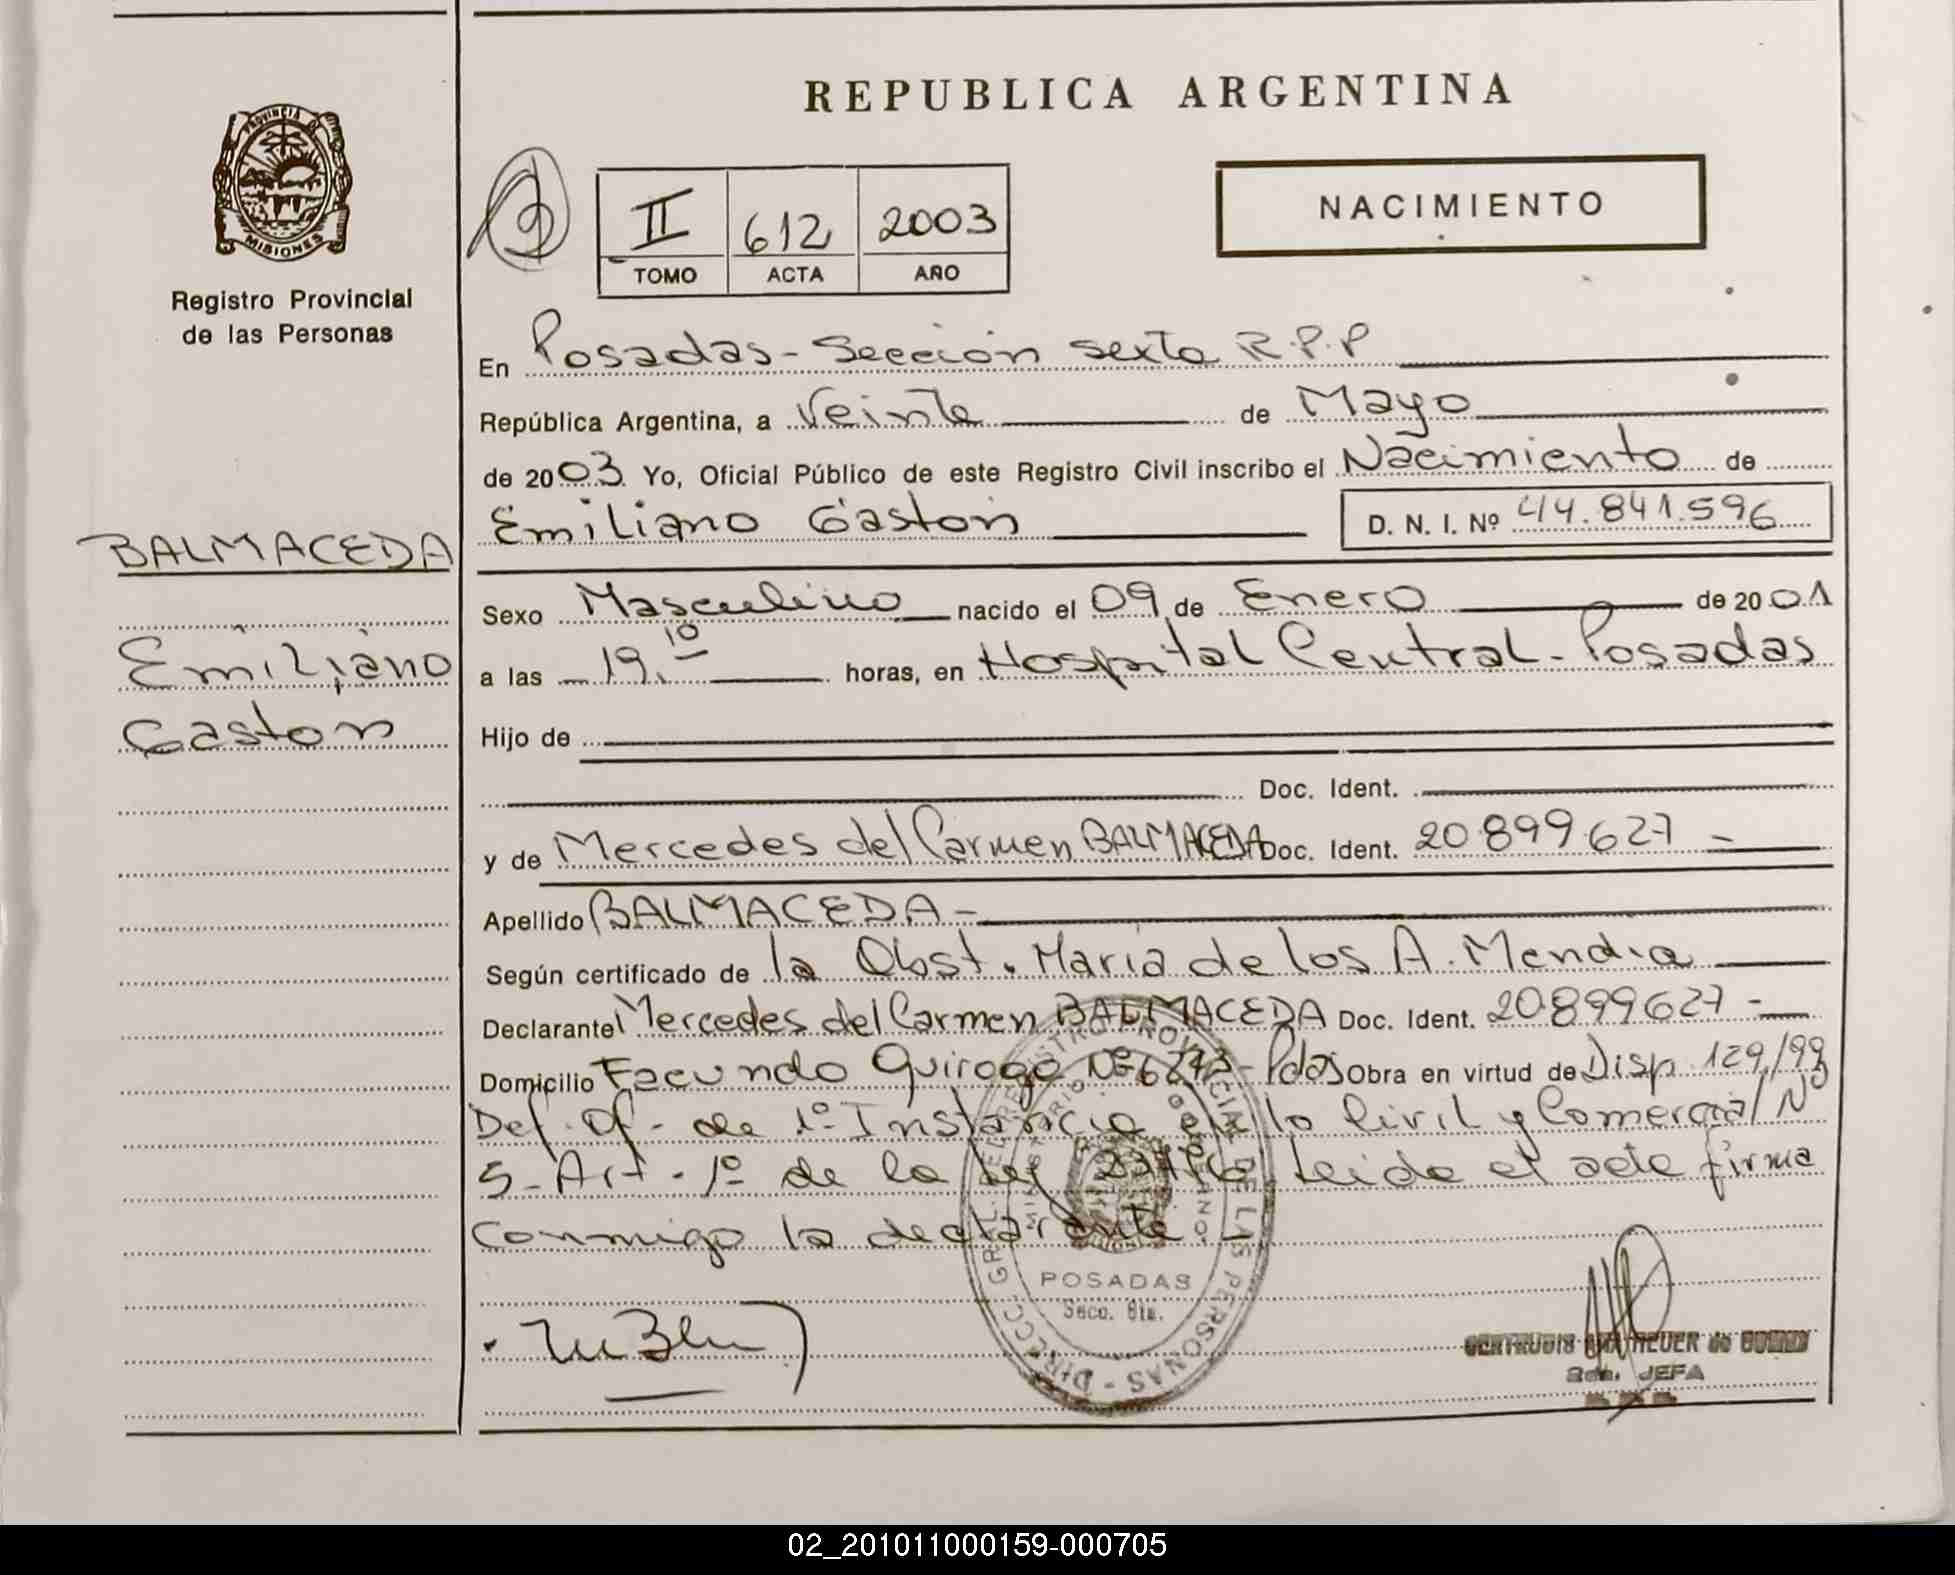 REPUBLICA ARGENTINA
PROVINCIA DE
MISIONES
Registro Provincial
de las Personas
II 612 2003
TOMO ACTA AÑO
NACIMIENTO
En Posadas - Sección sexta R.P.P
República Argentina, a Veinte de Mayo
de 2003 Yo, Oficial Público de este Registro Civil inscribo el Nacimiento de
Emiliano Gastón
D. N. I. Nº 44.841.596
BALMACEDA
Emiliano
Gaston
Sexo Masculino nacido el 09 de Enero de 2001
a las 19.10 horas, en Hospital Central - Posadas
Hijo de
Doc. Ident.
y de Mercedes del Carmen BALMACEDA Doc. Ident. 20899627 -
Apellido BALMACEDA -
Según certificado de la Obst. Maria de los A. Mendia
Declarante Mercedes del Carmen BALMACEDA Doc. Ident. 20899627 -
Domicilio Facundo Quiroga Nº - Pdas Obra en virtud de Disp. 129/99
Def. Of - de 1º Instancia en lo Civil y Comercial Nº
5 - Art - 1º de la ley Leida el acta firma
conmigo la declarante
DIRECC. GRAL. DEL REGISTRO PROVINCIAL DE LAS PERSONAS
POSADAS
Secc.
de
JEFA
02_201011000159-000705